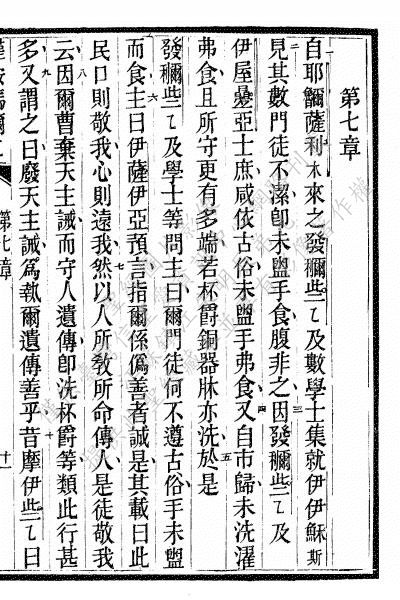 第七章
自耶薩利木來之發穪些乙及數學士集就伊伊穌斯
見其數門徒不潔卽未盥手食腹非之因發穪些乙及
伊屋疊亞士庶咸依古俗未盥手弗食又自市歸未洗濯
弗食且所守更有多端若杯爵銅器牀亦洗於是
發穪些乙及學士等問主曰爾門徒何不遵古俗手未盥
而食主曰伊薩伊亞預言指爾係僞善者誠是其載曰此
民口則敬我心則遠我然以人所敎所命傳人是徒敬我
云因爾曹棄天主誡而守人遺傳卽洗杯爵等類此行甚
多又謂之曰廢天主誡爲執爾遺傳善乎昔摩伊些乙曰
第七章
十一